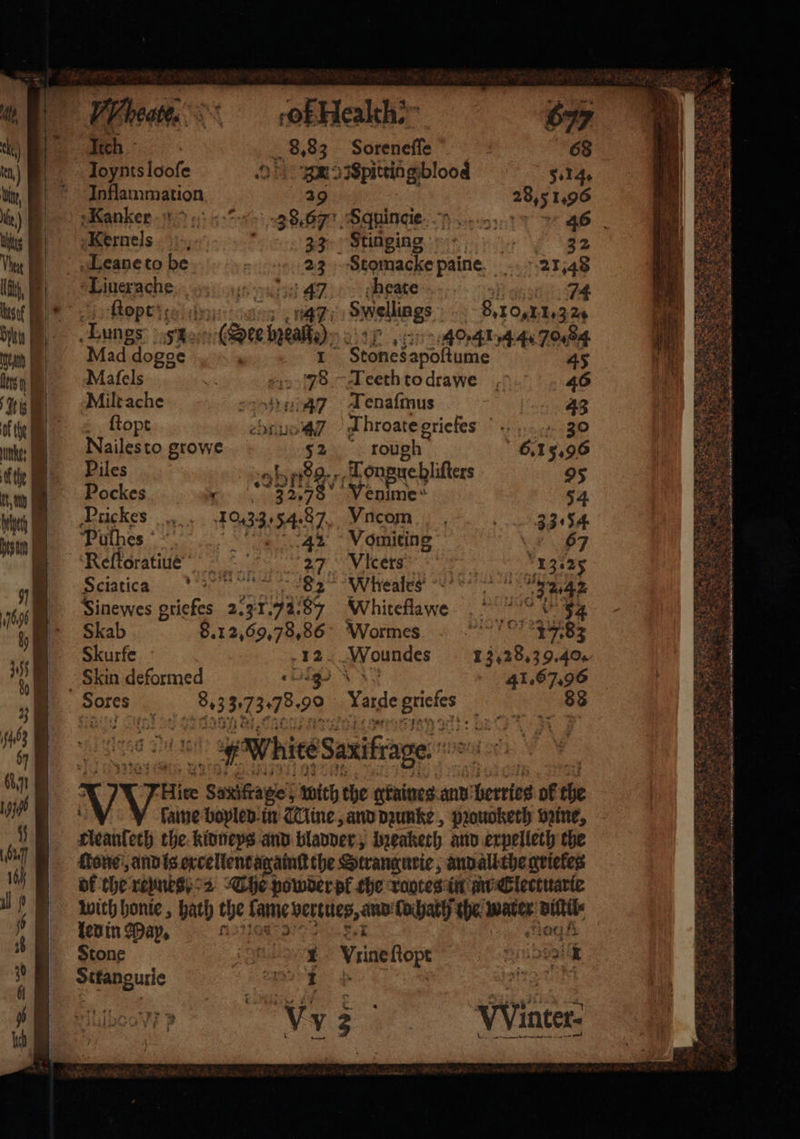 VVheate. of Health. 677
Itch 8,83 Sorenesse 68
Ioynts loose Spitting blood 5.14.
Inflammation 29 28,51.96
Kanker 38.67 Squincie. 46
Kernels 33 Stinging 32
Leane to be 23 Stomacke paine. 21,48
Liuerache 47 heate 74
stopt 47 Swellings 8,10,11.32.
Lungs (See breaste) 40.41.44.70.84
Mad dogge 1 Stones apostume 45
Masels 78 Teeth to drawe 46
Miltache 47 Tenasmus 43
stopt 47 Throate griefes 30
Nailes to growe 52 rough 6,15.96
Piles 89. Tongue blisters 95
Pockes 32,78 Venime 54
Prickes 10.33.54.87. Vncom 33.54
Pushes 42 Vomiting 67
Restoratiue 27 Vlcers 13.25
Sciatica 82 Wheales 32.42
Sinewes griefes 2.31.72.87 Whiteflawe 54
Skab 8.12,69,78,86 Wormes 17.83
Skurfe 12 Woundes 13,28,39.40.
Skin deformed 41.67.96
Sores 8,33.73.78.90 Yarde griefes 88
White Saxifrage.
WHite Saxifrage, with the graines and berries of the
same boyled in Wine, and drunke, prouoketh vrine,
cleanseth the kidneys and bladder, breaketh and expelleth the
stone, and is excellent against the Strangurie, and all the griefes
of the reynes, 2 The powder of the rootes in an Electuarie
with honie, hath the same vertues, and so hath the water distil-
led in May.
Stone 1 Vrine stopt 1
Strangurie 1
Vv 3 VVinter-